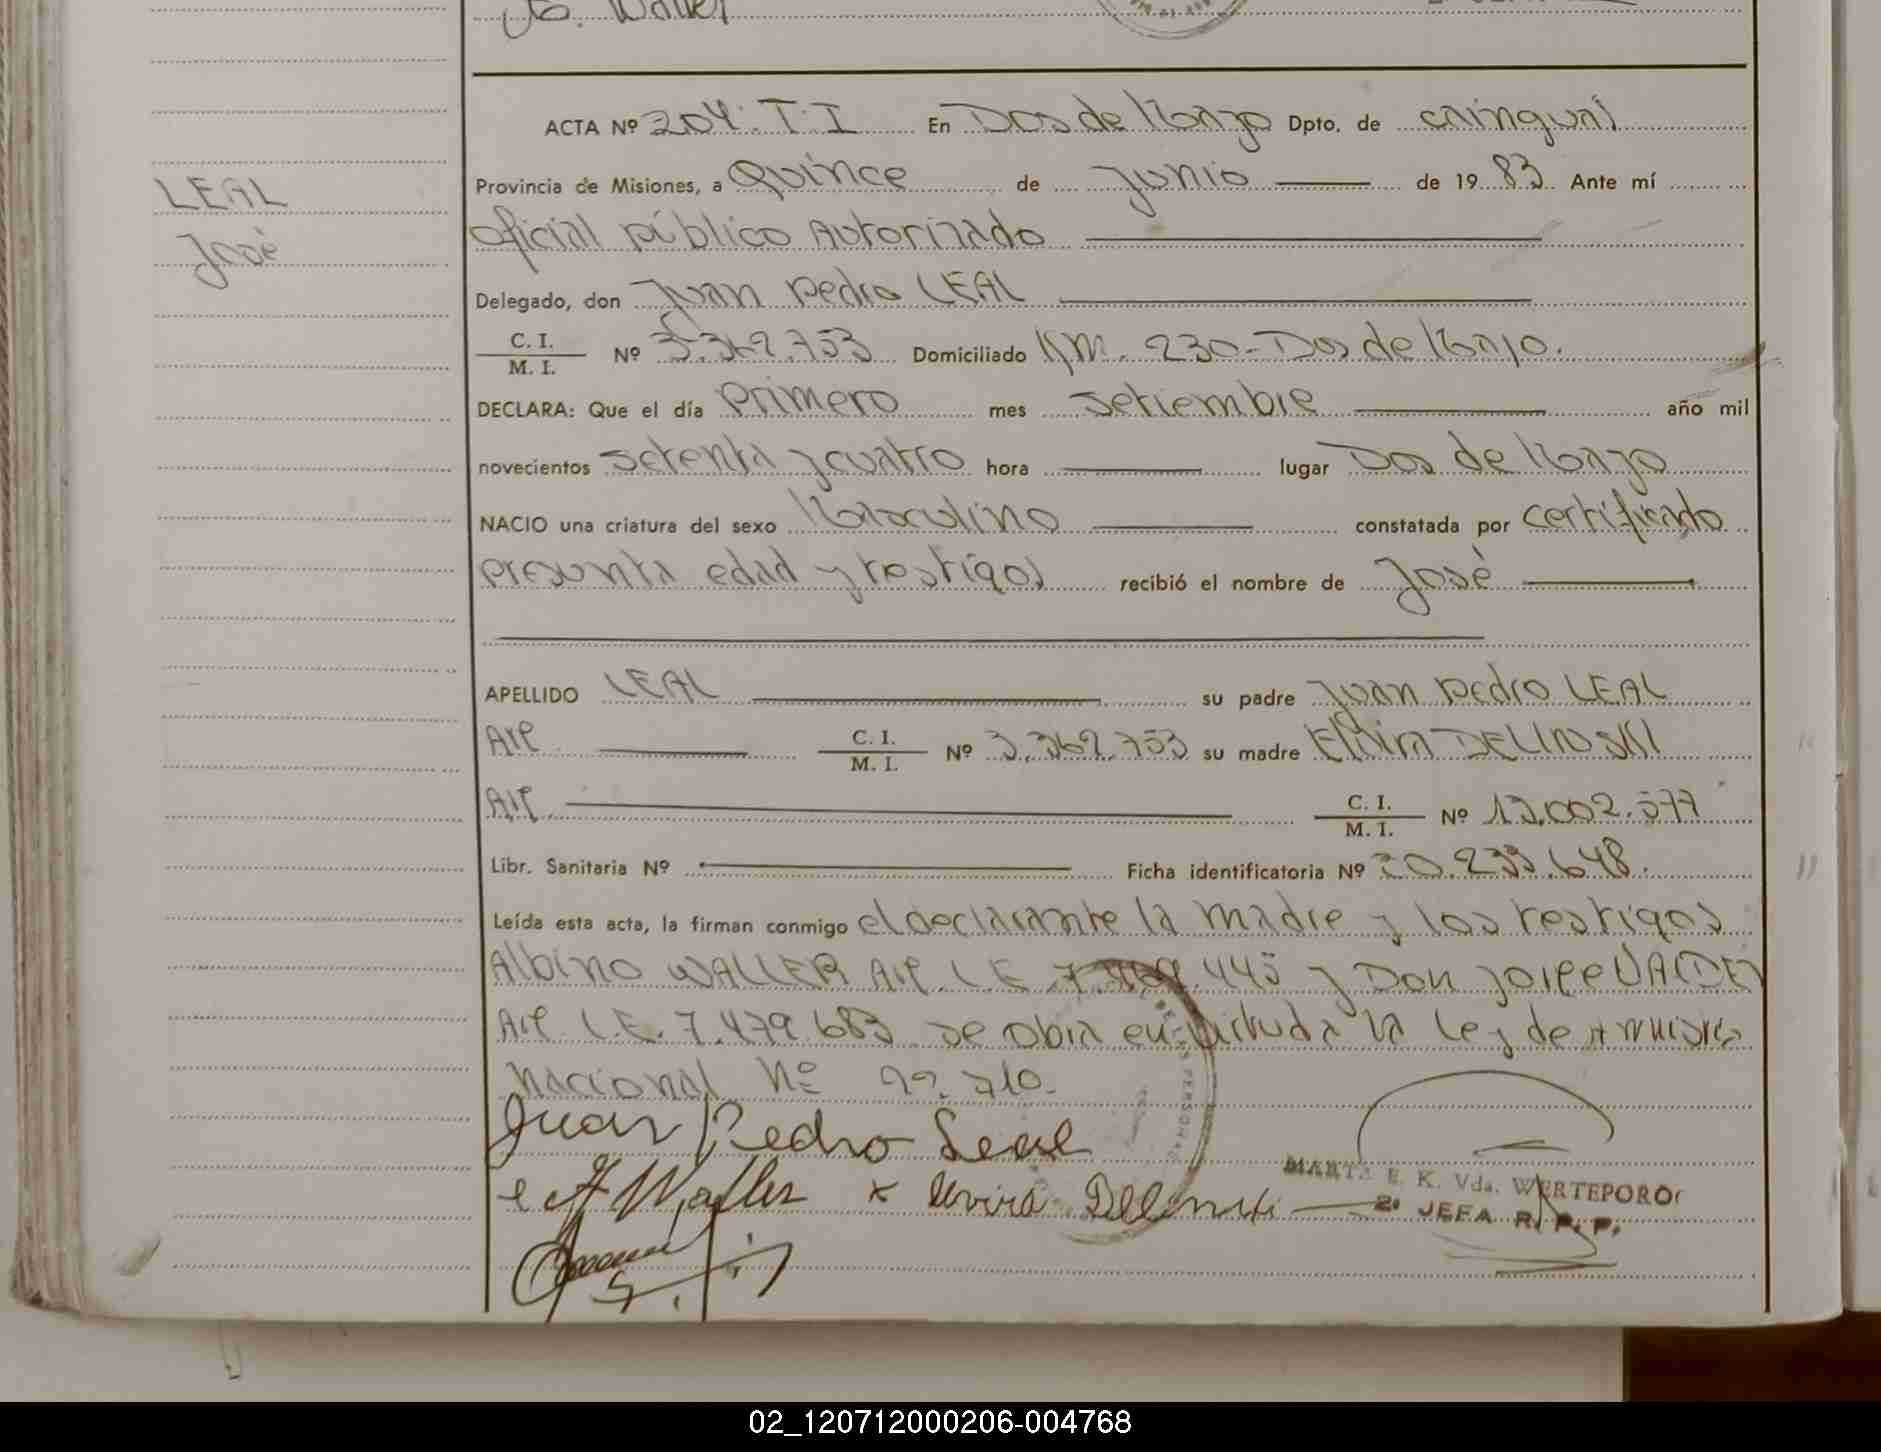 ACTA Nº 204. T. I En Dos de Mayo Dpto. de cainguas
LEAL
José
Provincia de Misiones, a Quince de Junio de 1983 Ante mí
oficial público Autorizado
Delegado, don Juan Pedro LEAL
C. I.
M. I. Nº 3.362.753 Domiciliado KM. 230 - Dos de Mayo.
DECLARA: Que el día primero mes setiembre año mil
novecientos setenta y cuatro hora lugar Dos de Mayo
NACIO una criatura del sexo Masculino constatada por certificado
presunta edad y testigos recibió el nombre de José
APELLIDO LEAL su padre Juan Pedro LEAL
Arg C. I.
M. I. Nº 3.362.753 su madre Elvira
Arg. C. I.
M. I. Nº 13.002.577
Libr. Sanitaria Nº Ficha identificatoria Nº 20.233.648.
Leída esta acta, la firman conmigo el declarante la madre y los testigos
Albino WALLER Arg. L.E. 445 y Don Jorge
Arg. L.E. 7.479.683 se obra en virtud a la Ley de Amnistia
Nacional Nº 22.710.
Juan Pedro Leal
A Waller x
MARTA E. K. Vda. WERTEPORO
2º JEFA R. P. P.
02_120712000206-004768